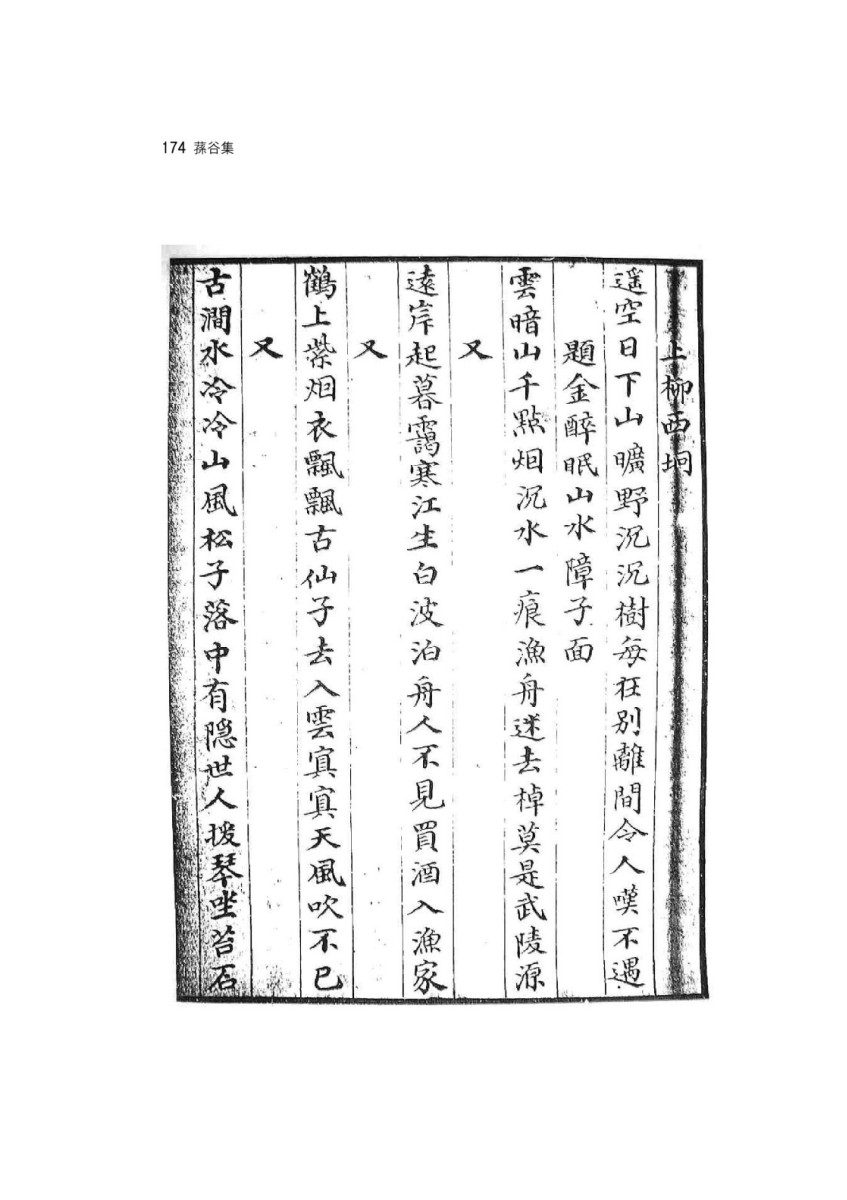 174 蓀谷集
上柳西坰
遥空日下山曠野沉沉樹每在別離間令人嘆不遇
題金醉眠山水障子面
雲暗山千點烟沉水一痕漁舟迷去棹莫是武陵源
又
遠岸起暮靄寒江生白波泊舟人不見買酒入漁家
又
鶴上紫烟衣飄飄古仙子去入雲寘寘天風吹不已
又
古澗水冷冷山風松子落中有隠世人援琴坐苔石